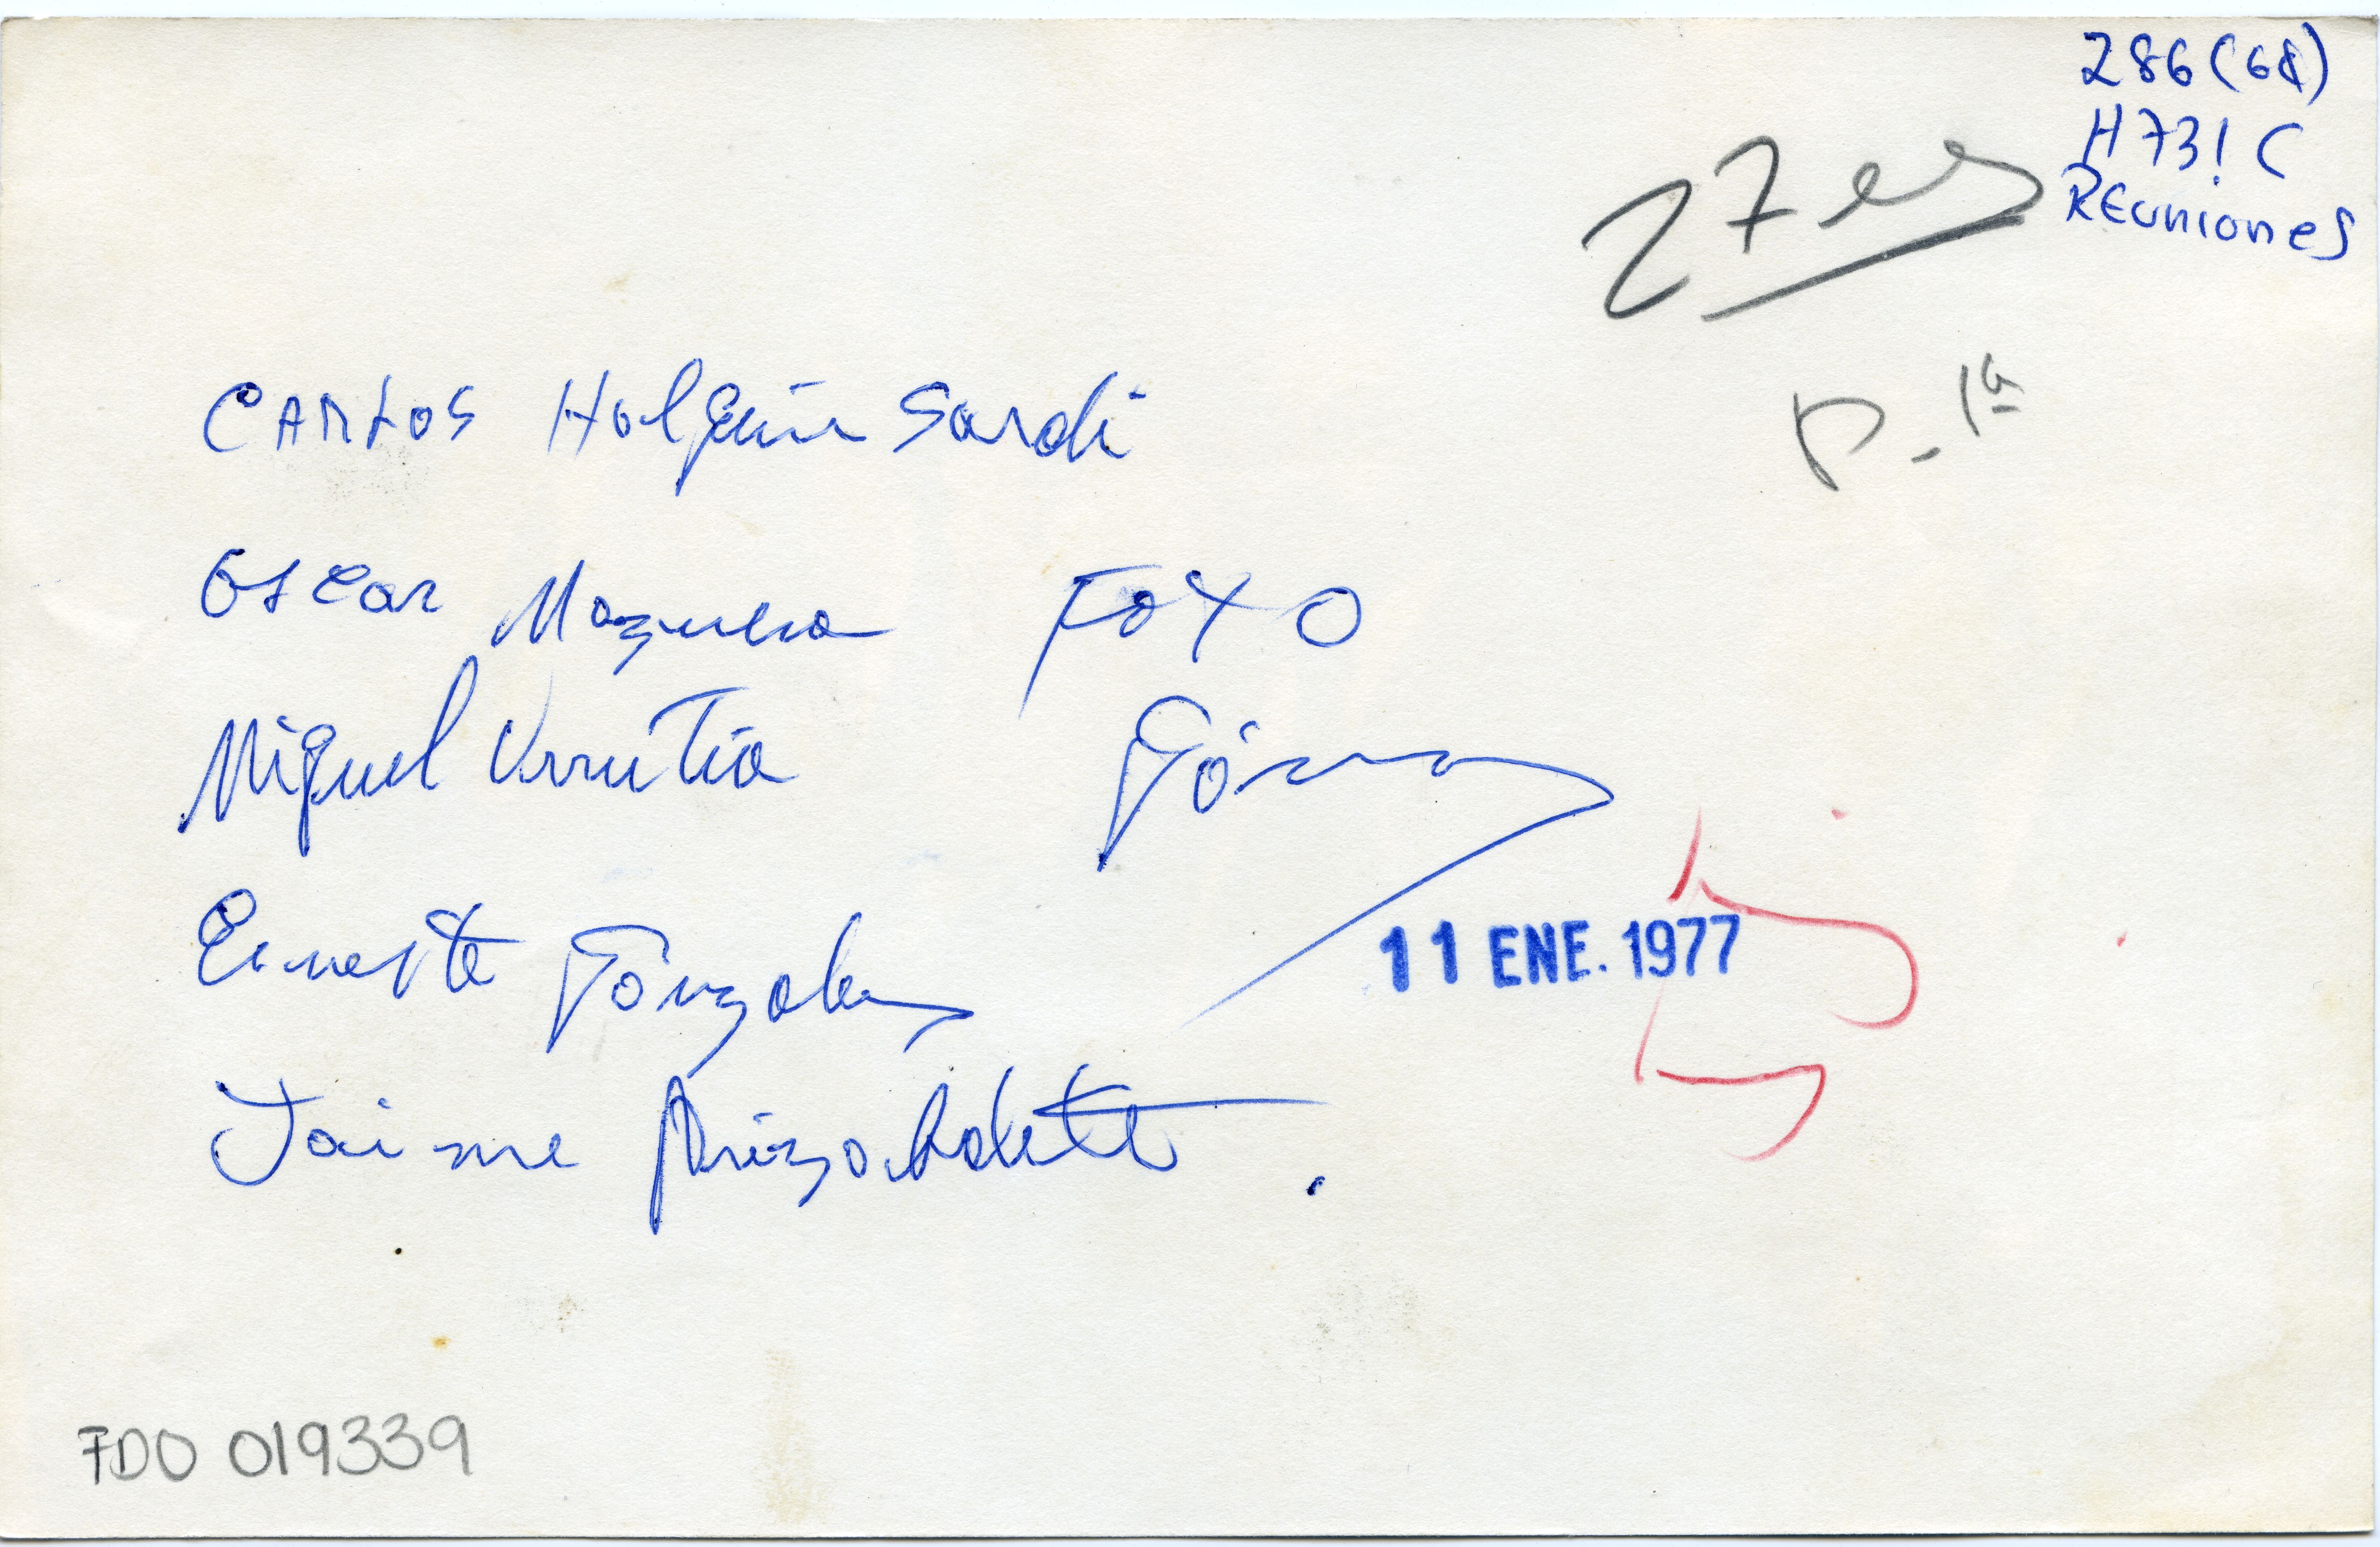 286(68)
H731C
REUNIONES
27
P. 1a
CARLOS Holguin Sardi
Oscar Mazuera FOTO
Miguel Urrutia Gómez
Ernesto Gonzalez
11 ENE. 1977
Jaime
FDO 019339